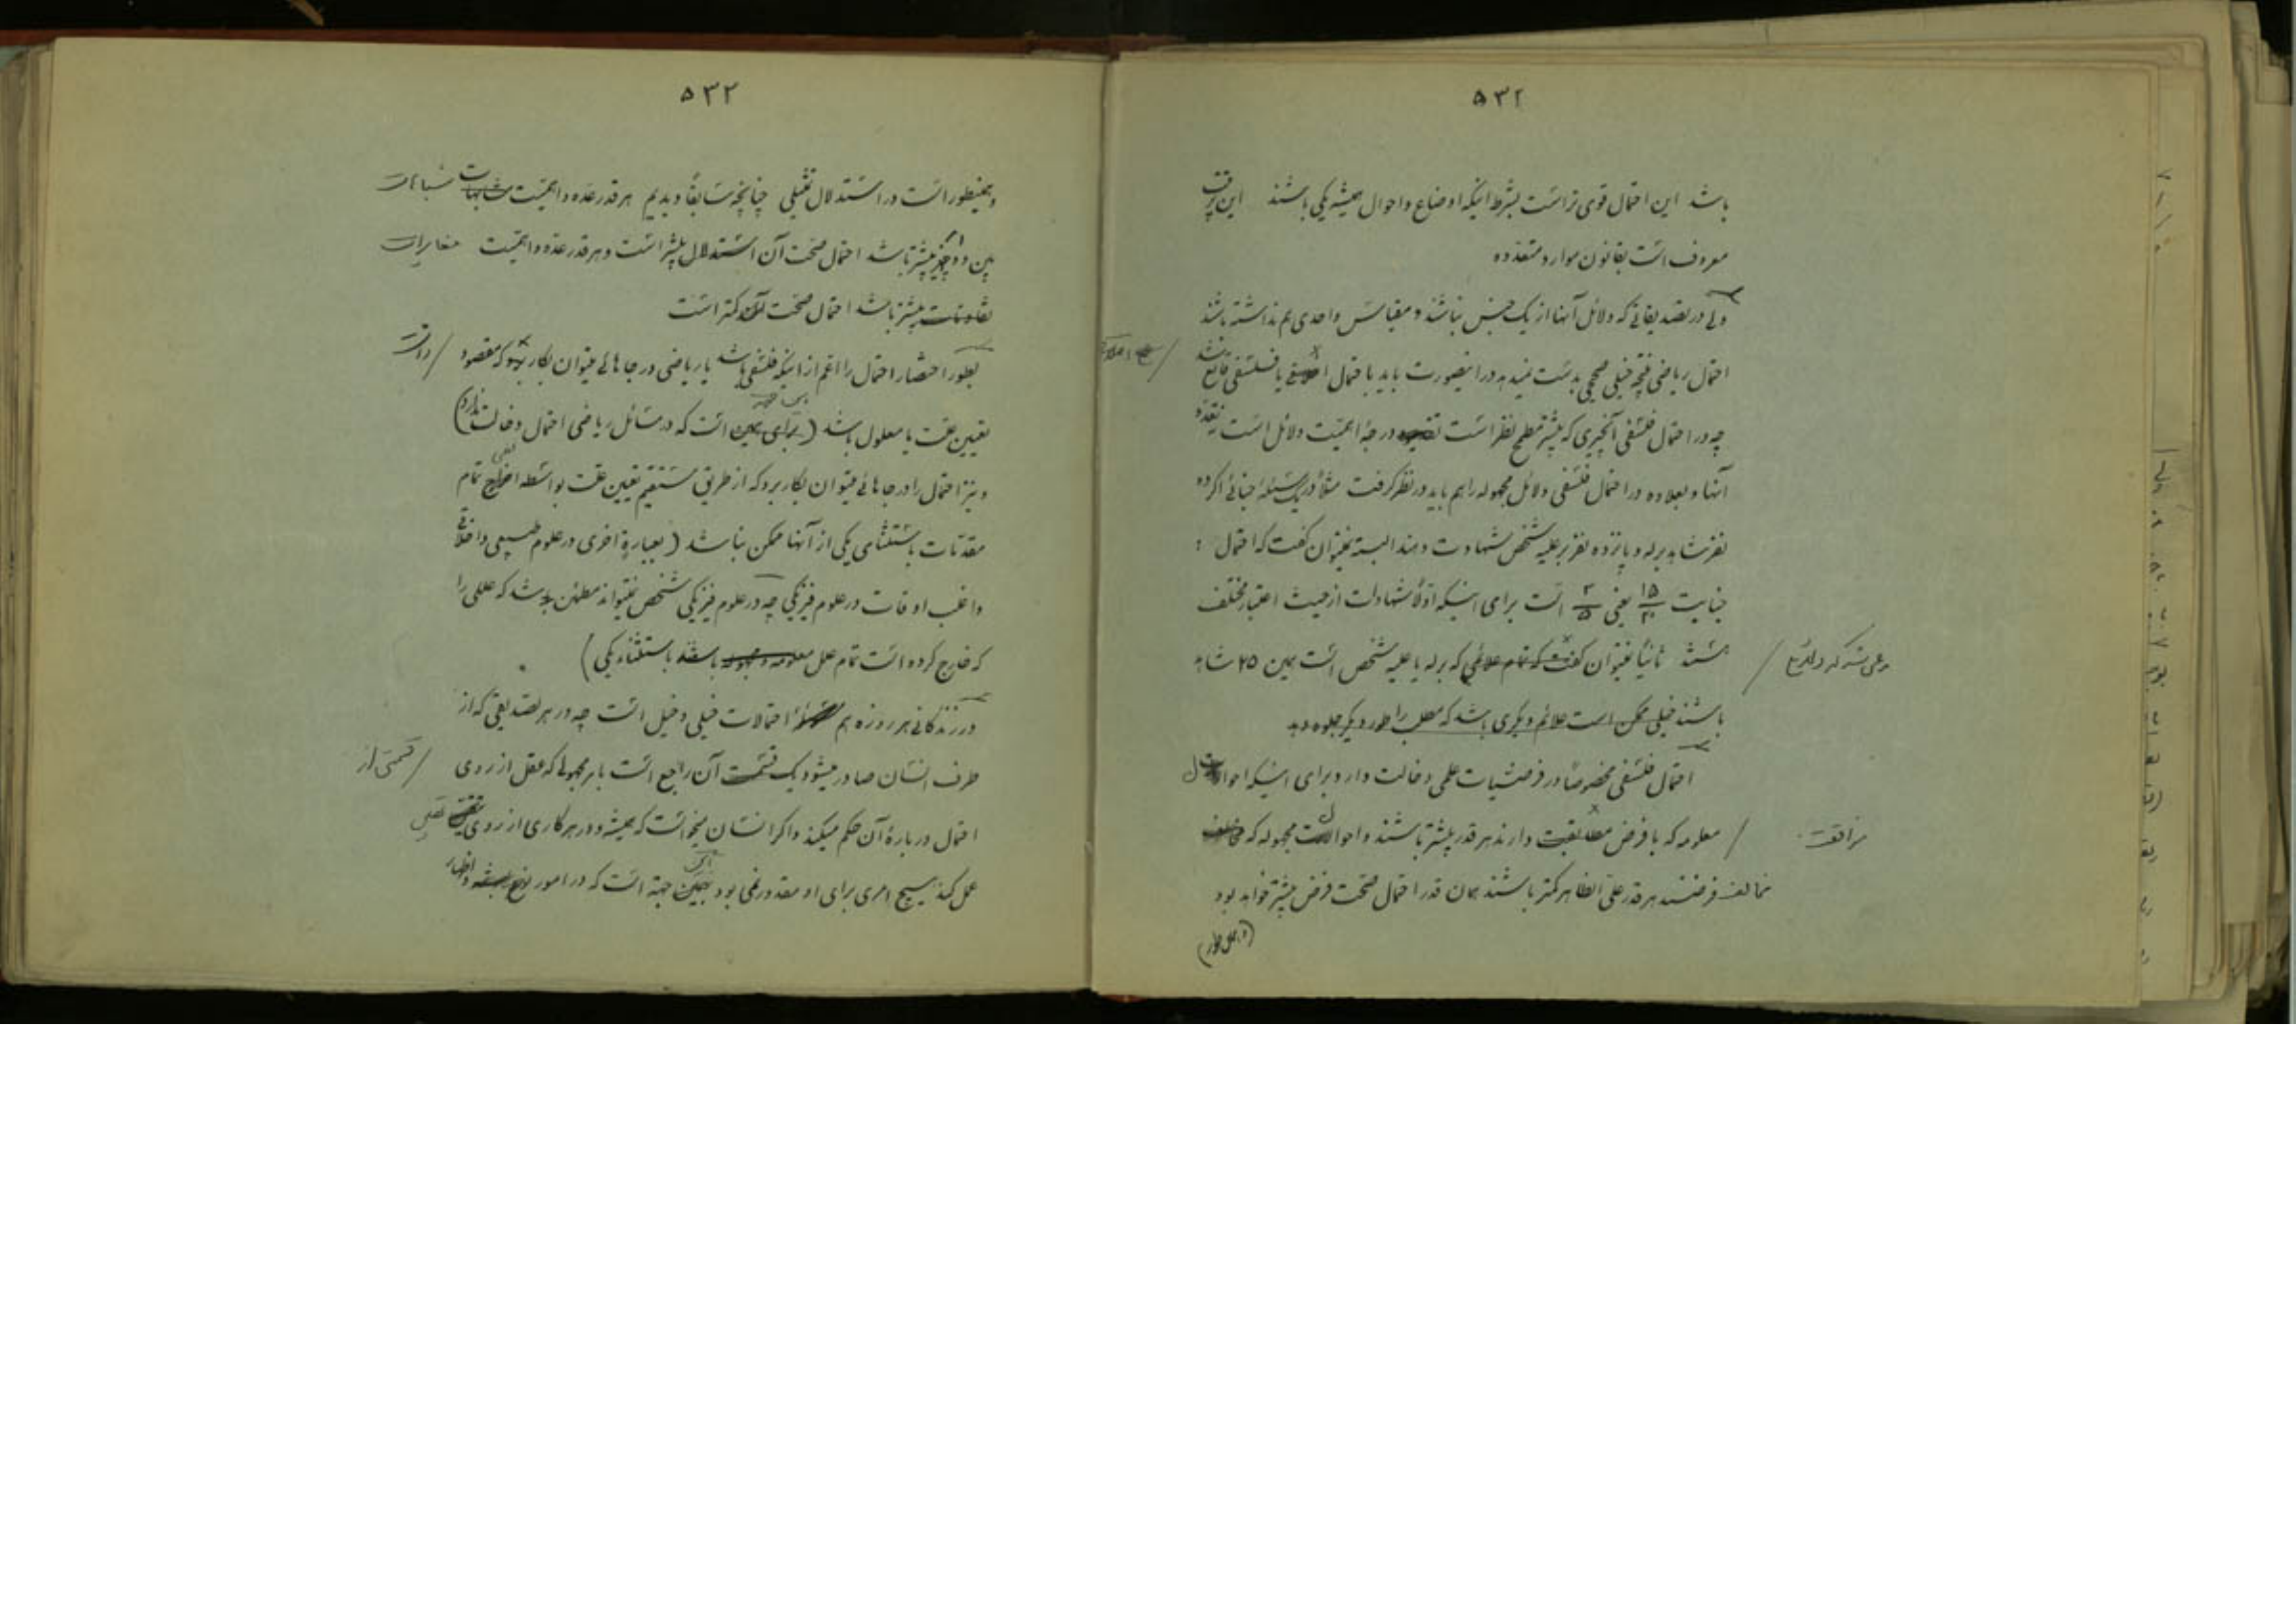 ۵۳۲
باشد این احتمال قوی تر است بشرط اینکه اوضاع و احوال همیشه یکی باشند این
معروف است بقانون موارد متعدده
ولی در تصدیقاتی که دلائل آنها از یک جنس نباشند و مقیاس واحدی هم نداشته باشند
احتمال ریاضی نتیجه خیلی صحیحی بدست نمیدهد در اینصورت باید با احتمال اخلاقی یا فلسفی قانع شد
چه در احتمال فلسفی آنچیزی که بیشتر مطمح نظر است درجهٔ اهمیت دلائل است نه تعدد
آنها و بعلاوه در احتمال فلسفی دلائل مجهوله را هم باید در نظر گرفت مثلاً در یک مسئله جنائی اگر ده
نفر شاهد بر له و پانزده نفر بر علیه شخص شهادت دهند البته نمیتوان گفت که احتمال
جنایت ۱۵/۲۰ یعنی ۳/۵ است برای اینکه اولاً شهادات از حیث اعتبار مختلف
هستند ثانیاً نمیتوان گفت که تمام علائمی که بر له یا علیه شخص است همین ۲۵ شاهد
باشند خیلی ممکن است علائم دیگری باشد که مطلب را طور دیگر جلوه دهد
احتمال فلسفی مخصوصاً در فرضیات علمی دخالت دارد برای اینکه احوال
معلومه که با فرض مطابقت دارند هر قدر بیشتر باشند و احوال مجهوله که
موافقت
مخالف فرضند هر قدر علی الظاهر کمتر باشند همان قدر احتمال صحت فرض بیشتر خواهد بود
۵۳۳
و همینطور است در استدلال تمثیلی چنانچه سابقاً دیدیم هر قدر عده و اهمیت مشابهات
بین دو چیز بیشتر باشد احتمال صحت آن استدلال بیشتر است و هر قدر عده و اهمیت مغایرات
تفاوتات بیشتر باشد احتمال صحت آن کمتر است
بطور اختصار احتمال را اعم از اینکه فلسفی باشد یا ریاضی در جاهائی میتوان بکار برد که مقصود
تعیین علت یا معلول باشد (برای همین است که در مسائل ریاضی احتمال دخالت ندارد)
و نیز احتمال را در جاهائی میتوان بکار برد که از طریق مستقیم تعیین علت بواسطه اخراج تمام
مقدمات باستثنای یکی از آنها ممکن نباشد (بعبارة اخری در علوم طبیعی و اخلاقی
و اغلب اوقات در علوم فیزیکی چه در علوم فیزیکی شخص نمیتواند مطمئن باشد که عللی را
که خارج کرده است تمام علل معلومه و مجهوله باشند باستثناء یکی)
در زندگانی هر روزه هم احتمالات خیلی دخیل است چه در هر تصدیقی که از
طرف انسان صادر میشود یک قسمت آن راجع است بامر مجهولی که عقل از روی
قسمتی از
احتمال دربارهٔ آن حکم میکند و اگر انسان میخواست که همیشه و در هر کاری از روی یقین
عمل کند هیچ امری برای او مقدور نمی بود جهة است که در امور